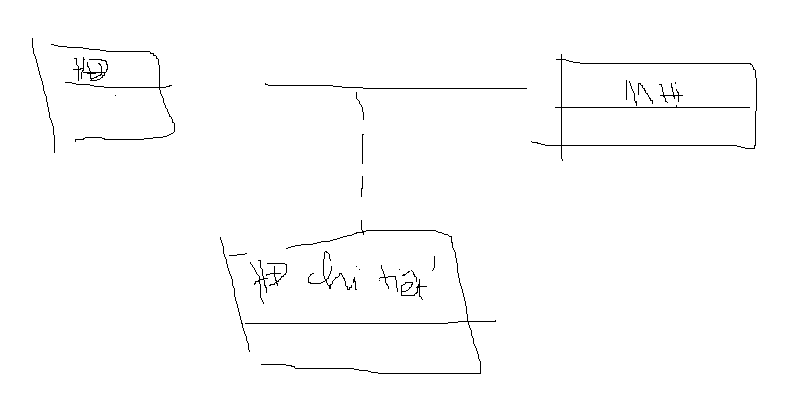 HD
MH
HD chi tiết